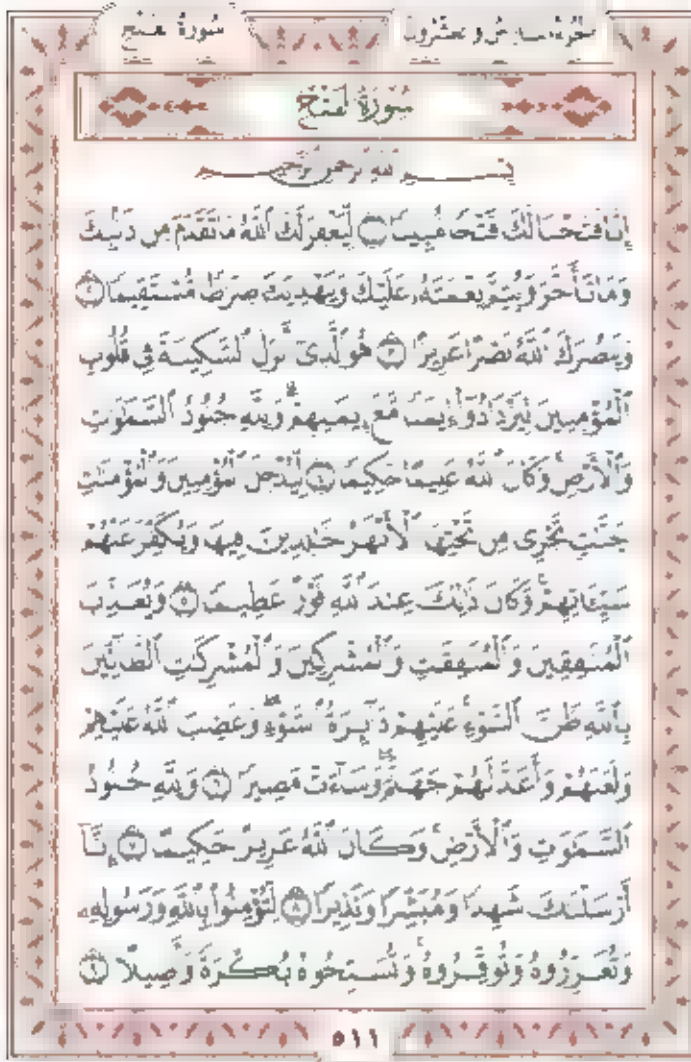 سُورَةُ الفَتْحِ
الجُزءُ السَّادِسُ وَالعِشْرُونَ
سُورَةُ الفَتْحِ
بِسْمِ ٱللَّهِ ٱلرَّحْمَٰنِ ٱلرَّحِيمِ
إِنَّا فَتَحْنَا لَكَ فَتْحًا مُّبِينًا ١ لِّيَغْفِرَ لَكَ ٱللَّهُ مَا تَقَدَّمَ مِن ذَنۢبِكَ
وَمَا تَأَخَّرَ وَيُتِمَّ نِعْمَتَهُۥ عَلَيْكَ وَيَهْدِيَكَ صِرَٰطًا مُّسْتَقِيمًا ٢
وَيَنصُرَكَ ٱللَّهُ نَصْرًا عَزِيزًا ٣ هُوَ ٱلَّذِىٓ أَنزَلَ ٱلسَّكِينَةَ فِى قُلُوبِ
ٱلْمُؤْمِنِينَ لِيَزْدَادُوٓا۟ إِيمَٰنًا مَّعَ إِيمَٰنِهِمْ ۗ وَلِلَّهِ جُنُودُ ٱلسَّمَٰوَٰتِ
وَٱلْأَرْضِ ۚ وَكَانَ ٱللَّهُ عَلِيمًا حَكِيمًا ٤ لِّيُدْخِلَ ٱلْمُؤْمِنِينَ وَٱلْمُؤْمِنَٰتِ
جَنَّٰتٍ تَجْرِى مِن تَحْتِهَا ٱلْأَنْهَٰرُ خَٰلِدِينَ فِيهَا وَيُكَفِّرَ عَنْهُمْ
سَيِّـَٔاتِهِمْ ۚ وَكَانَ ذَٰلِكَ عِندَ ٱللَّهِ فَوْزًا عَظِيمًا ٥ وَيُعَذِّبَ
ٱلْمُنَٰفِقِينَ وَٱلْمُنَٰفِقَٰتِ وَٱلْمُشْرِكِينَ وَٱلْمُشْرِكَٰتِ ٱلظَّآنِّينَ
بِٱللَّهِ ظَنَّ ٱلسَّوْءِ ۚ عَلَيْهِمْ دَآئِرَةُ ٱلسَّوْءِ ۖ وَغَضِبَ ٱللَّهُ عَلَيْهِمْ
وَلَعَنَهُمْ وَأَعَدَّ لَهُمْ جَهَنَّمَ ۖ وَسَآءَتْ مَصِيرًا ٦ وَلِلَّهِ جُنُودُ
ٱلسَّمَٰوَٰتِ وَٱلْأَرْضِ ۚ وَكَانَ ٱللَّهُ عَزِيزًا حَكِيمًا ٧ إِنَّآ
أَرْسَلْنَٰكَ شَٰهِدًا وَمُبَشِّرًا وَنَذِيرًا ٨ لِّتُؤْمِنُوا۟ بِٱللَّهِ وَرَسُولِهِۦ
وَتُعَزِّرُوهُ وَتُوَقِّرُوهُ ۚ وَتُسَبِّحُوهُ بُكْرَةً وَأَصِيلًا ٩
٥١١